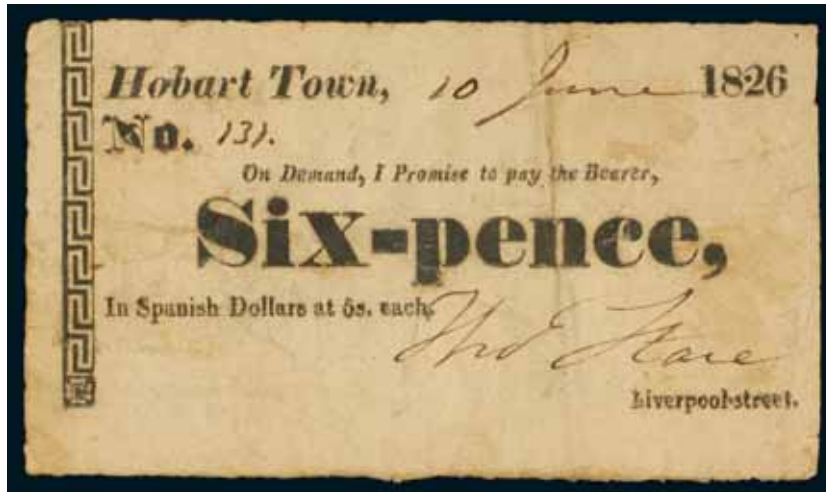 Hobart Town, 10 June 1826
No. 131.
On Demand, I Promise to pay the Bearer,
Six-pence,
In Spanish Dollars at 5s. each.
Thos
Liverpool-street.